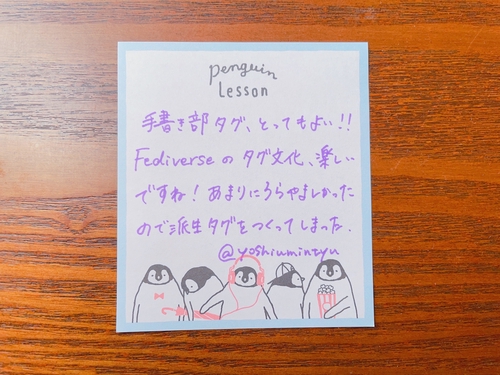 penguin
Lesson
手書き部タグ、とってもよい!!
Fediverseのタグ文化、楽しい
ですね！あまりにうらやましかった
ので派生タグをつくってしまった.
@yoshiumintyu